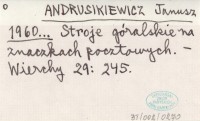 ANDRUSIKIEWICZ Janusz
1960... Stroje góralskie na
znaczkach pocztowych. –
Wierchy 29: 245.